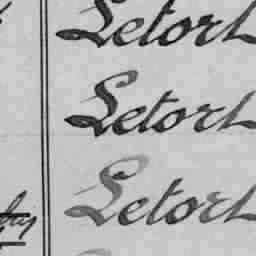 Letort
Letort
Letort